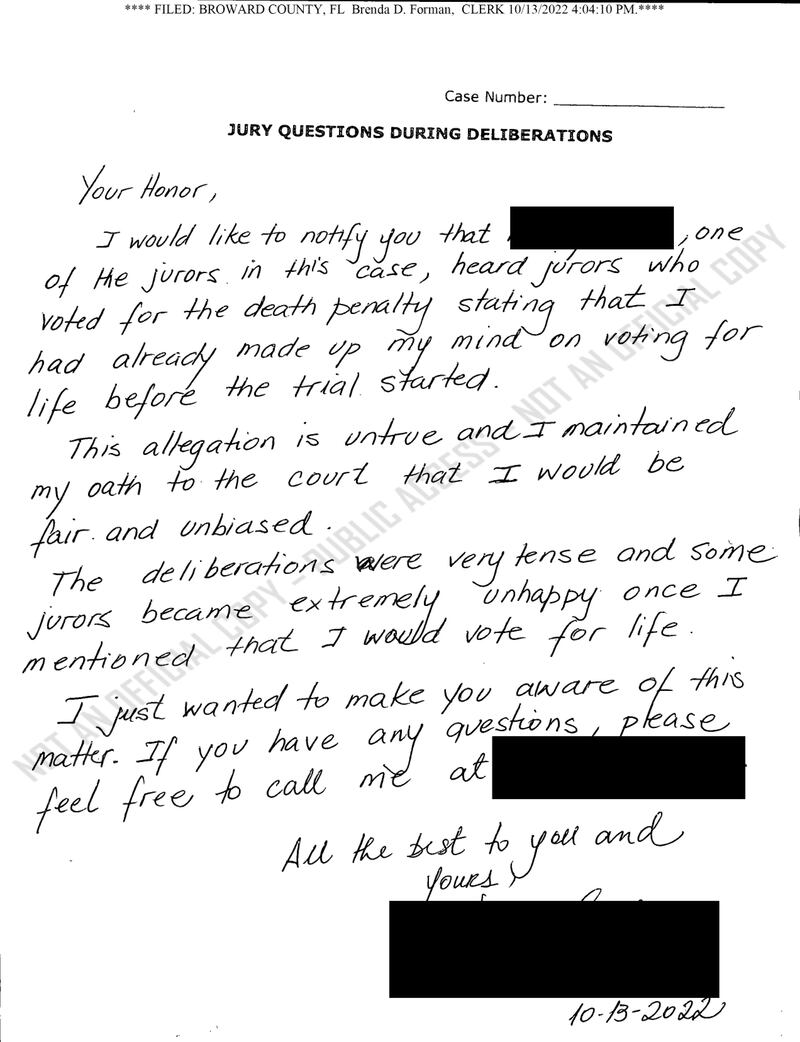 **** FILED: BROWARD COUNTY, FL Brenda D. Forman, CLERK 10/13/2022 4:04:10 PM.****
Case Number:
JURY QUESTIONS DURING DELIBERATIONS
Your Honor,
I would like to notify you that , one
of the jurors in this case, heard jurors who
voted for the death penalty stating that I
had already made up my mind on voting for
life before the trial started.
This allegation is untrue and I maintained
my oath to the court that I would be
fair and unbiased.
The deliberations were very tense and some
jurors became extremely unhappy once I
mentioned that I would vote for life.
I just wanted to make you aware of this
matter. If you have any questions, please
feel free to call me at
All the best to you and
yours,
10-13-2022
NOT AN OFFICIAL COPY - PUBLIC ACCESS NOT AN OFFICIAL COPY